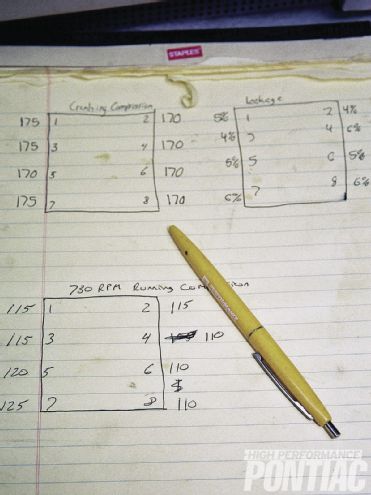 STAPLES
Cranking Compression
175 1 2 170
175 3 4 170
170 5 6 170
175 7 8 170
Leakage
5% 1 2 4%
4% 3 4 6%
5% 5 6 5%
6% 7 8 6%
730 RPM Running Compression
115 1 2 115
115 3 4 110
120 5 6 110
125 7 8 110
HIGH PERFORMANCE
PONTIAC